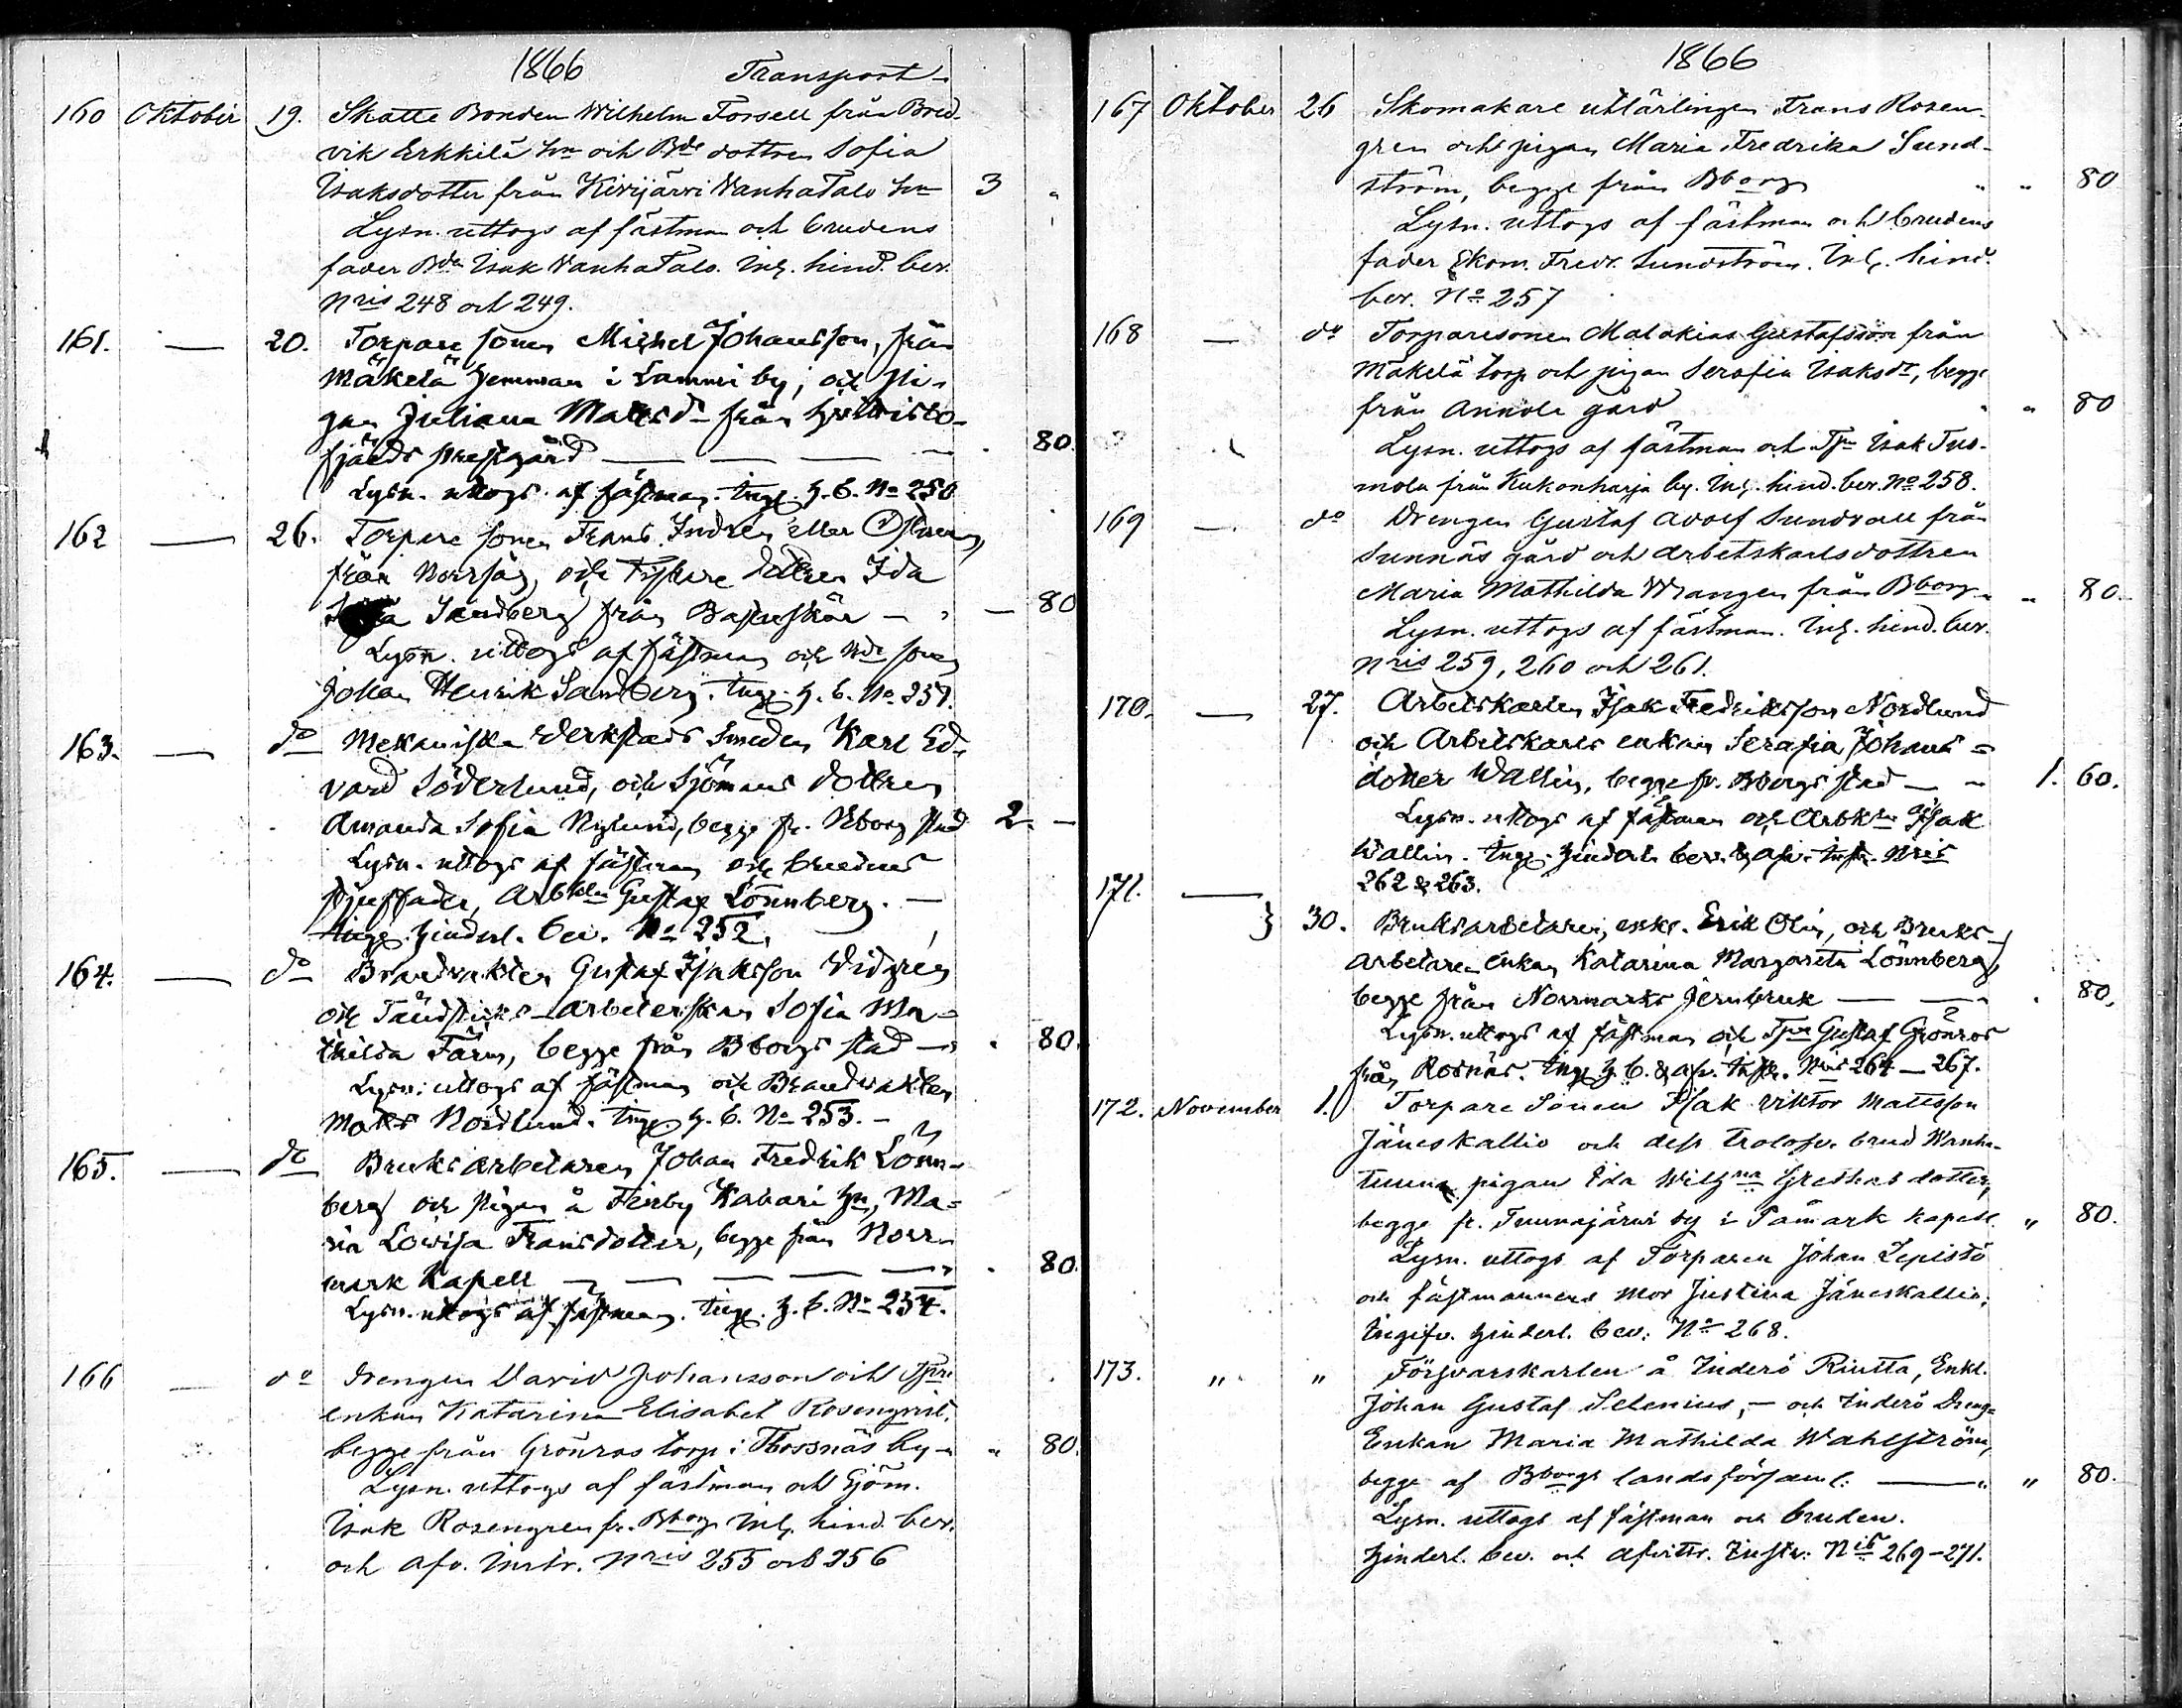 1866 Transport
160 Oktober 19. Skatte Bonden Wilhelm Forsell från Bred-
vik Erkkilä hn och Bde dottren Sofia
Isaksdotter från Kivijärvi Vanhatalo hn 3 "
Lysn. uttogs af fästman och brudens
fader Bdn Isak Vanhatalo. Inl. hind. bev.
Nris 248 och 249.
161. — 20. Torpare sonen Michel Johansson, från
Mäkelä hemman i Lammi by, och pi-
gan Juliana Matsd:r från Hvittisbo-
fjärds prestgård — — — — " 80.
Lysn. uttogs af fästman. Inge. h. b. No 250
162 — 26. Torpare sonen Frans Indrén eller
från Norrsäg, och dottren Ida
Sandberg från Bastuskär — " — 80
Lysn. uttogs af fästman och sonen
Johan Henrik Sandberg. Inge. h. b. No. 251.
163. — do Mekaniska Verkstads Smeden Karl Ed-
vard Söderlund, och Sjömans dottren
Amanda Sofia Nylund, begge fr. Bborg stad 2. —
Lysn. uttogs af fästman och brudens
stjuffader, Arbkln Gustaf Lönnberg. —
Inge. hinderl. bev. No 252.
164. — do Brandvakten Gustaf Isaksson Widgren
och Tändsticks-arbeterskan Sofia Ma-
thilda Färm, begge från Bborgs stad — " 80.
Lysn. uttogs af fästman och Brandvakten
Mats Nordlund. Inge. h. b. No 253. —
165. — do Bruksarbetaren Johan Fredrik Lönn-
berg och pigan å Finby Kabari hn, Ma-
ria Lovisa Fransdotter, begge från Norr-
mark Kapell — — — — — " 80.
Lysn. uttogs af fästman. Inge. h. b. No 254.
166 — do Drengen David Johansson och Tpre
enkan Katarina Elisabet Rosenqvist,
begge från Grönroos torp i Thossnäs by " " 80.
Lysn. uttogs af fästman och Sjöm.
Isak Rosengren fr. Bborg. Inl. hind. bev.
och afv. instr. Nris 255 och 256
1866
167 Oktober 26 Skomakare utlärlingen Frans Rosen-
gren och pigan Maria Fredrika Sund-
ström, begge från Bborg " " 80
Lysn. uttogs af fästman och brudens
fader Skom. Fredr. Sundström. Inl. hind.
bev. No 257
168 — do Torparesonen Malakias Gustafsson från
Mäkelä torp och pigan Serafia Isaksdr, begge
från Annola gård " " 80
Lysn. uttogs af fästman och Tpn Isak Tuo-
mola från Kukonharja by. Inl. hind. bev. No 258.
169 — do Drengen Gustaf Adolf Sundvall från
Sunnäs gård och arbetskarlsdottren
Maria Mathilda Wrangen från Bborg " " 80.
Lysn. uttogs af fästman. Inl. hind. bev.
Nris 259, 260 och 261.
170. — 27. Arbetskarlen Isak Fredriksson Nordlund
och Arbetskarls enkan Serafia Johans-
dotter Wallin, begge fr. Bborgs stad — — 1. 60.
Lysn. uttogs af fästman och Arbkln Isak
Wallin. Inge. hinderl. bev. & afv. instr. Nris
262 & 263.
171. — } 30. Bruksarbetaren, enkl. Erik Olin, och Bruks-
arbetare enkan Katarina Margareta Lönnberg,
begge från Norrmarks Jernbruk — — " 80.
Lysn. uttogs af fästman och Tpn Gustaf Grönroos
från Rosnäs. Inge. h. b. & afv. instr. Nris 264 — 267.
172. November 1. Torpare Sonen Isak Viktor Mattsson
Jäneskallio och dess trolofv. brud
pigan Ida Wilhna Grethas dotter,
begge fr. Tuunajärvi by i Påmark kapell. " 80.
Lysn. uttogs af Torparen Johan Lepistö
och fästmannens mor Justina Jäneskallio;
Ingifv. hinderl. bev: No 268.
173. " " Försvarskarlen å Inderö Riutta, Enkl.
Johan Gustaf Selenius, — och Inderö Dreng-
Enkan Maria Mathilda Wahlström,
begge af Bborgs landsförsaml. — " " 80.
Lysn. uttogs af fästman och bruden.
Hinderl. bev. och afvittr. Instr. Nris 269-271.